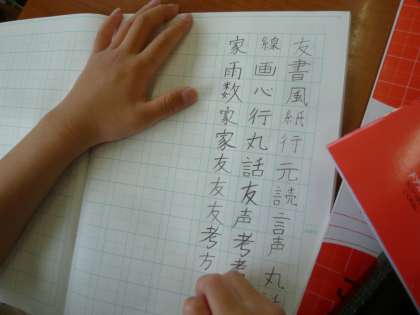 友書風紙行元読言声丸
線画心行丸話友声考考
家雨数家家友友友考方